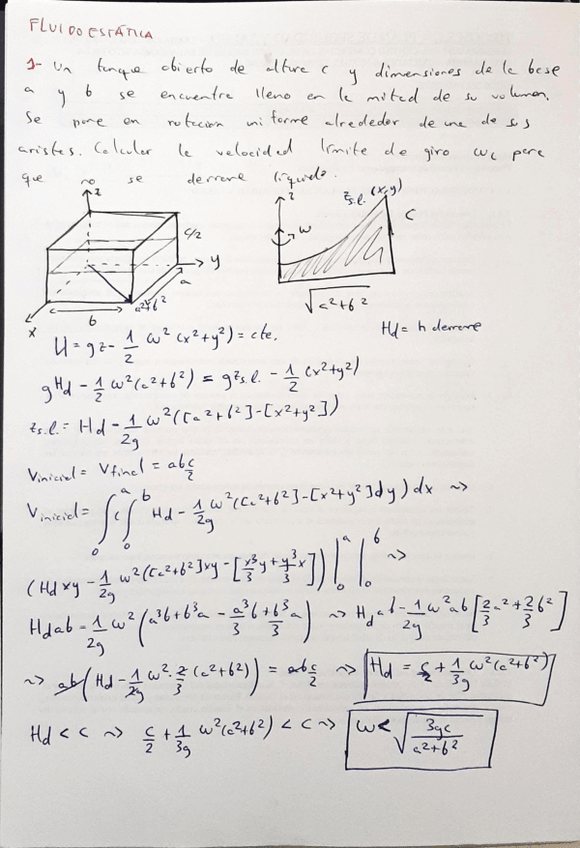 FLUIDOESTÁTICA
1- Un tanque abierto de altura c y dimensiones de la base
a y b se encuentra lleno en la mitad de su volumen.
Se pone en rotacion uniforme alrededor de una de sus
aristas. Calcular la velocidad limite de giro ωL para
que no se derrame líquido.
z
c/2
y
a
a²+b²
b
x
z
ω
zs.l. (x,y)
c
√(a²+b²)
Hd = h derrame
U = gz - 1/2 ω² (x²+y²) = cte.
gHd - 1/2 ω²(a²+b²) = gzs.l. - 1/2 (x²+y²)
zs.l. = Hd - 1/2g ω²([a²+b²]-[x²+y²])
Vinicial = Vfinal = abc/2
Vinicial = ∫₀ᵃ(∫₀ᵇ Hd - 1/2g ω²([a²+b²]-[x²+y²]dy) dx ~>
(Hd xy - 1/2g ω²([a²+b²]xy - [x³/3 y + y³/3 x])) |₀ᵃ |₀ᵇ ~>
Hd ab - 1/2g ω² (a³b + b³a - a³b/3 + b³a/3) ~> Hd ab - 1/2g ω² ab [2/3 a² + 2/3 b²]
~> ab(Hd - 1/2g ω² · 2/3 (a²+b²)) = abc/2 ~> Hd = c/2 + 1/3g ω²(a²+b²)
Hd < c ~> c/2 + 1/3g ω²(a²+b²) < c ~> ω < √(3gc/a²+b²)